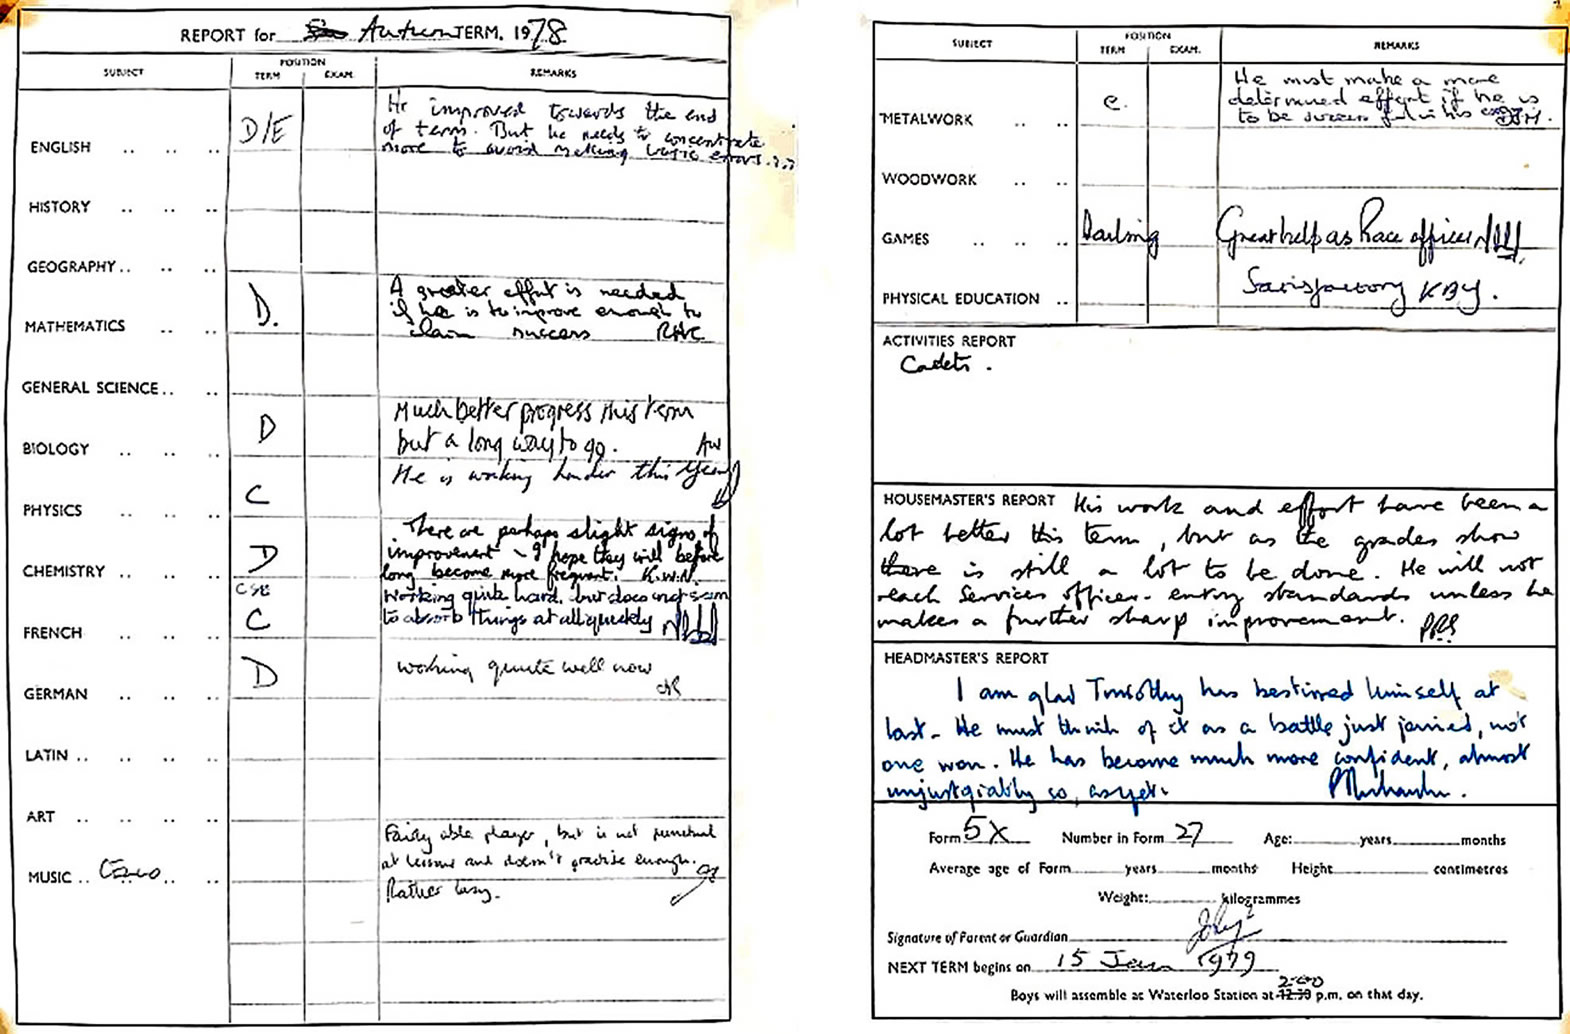 REPORT for Autumn TERM. 1978
SUBJECT
POSITION
TERM EXAM.
REMARKS
ENGLISH .. .. .. D/E
He improved towards the end
of term. But he needs to concentrate
more to avoid making basic errors.
HISTORY .. .. ..
GEOGRAPHY.. .. ..
MATHEMATICS .. .. D.
A greater effort is needed
if he is to improve enough to
claim success RHC
GENERAL SCIENCE.. ..
BIOLOGY .. .. .. D
Much better progress this term
but a long way to go. AW
PHYSICS .. .. .. C
He is working harder this year
CHEMISTRY .. .. .. D
There are perhaps slight signs of
improvement ~ I hope they will before
long become more frequent. K.W.N.
FRENCH .. .. .. CSE C
Working quite hard, but does not seem
to absorb things at all quickly
GERMAN .. .. .. D
working quite well now
LATIN .. .. .. ..
ART .. .. .. ..
MUSIC .. .. ..
Fairly able player, but is not punctual
at lessons and doesn't practise enough.
Rather lazy.
SUBJECT
POSITION
TERM EXAM.
REMARKS
METALWORK .. .. C.
He must make a more
determined effort if he is
to be successful in his
WOODWORK .. ..
GAMES .. .. .. Darling
Great help as Race officer
PHYSICAL EDUCATION ..
Satisfactory KBY.
ACTIVITIES REPORT
Cadets.
HOUSEMASTER'S REPORT His work and effort have been a
lot better this term, but as the grades show
there is still a lot to be done. He will not
reach Services officer-entry standards unless he
makes a further sharp improvement. PRS
HEADMASTER'S REPORT
I am glad Timothy has bestirred himself at
last. He must think of it as a battle just joined, not
one won. He has become much more confident, almost
unjustifiably so, as yet.
Form 5X Number in Form 27 Age: years months
Average age of Form years months Height centimetres
Weight: kilogrammes
Signature of Parent or Guardian
NEXT TERM begins on 15 Jan 1979
2-00
Boys will assemble at Waterloo Station at 12.30 p.m. on that day.